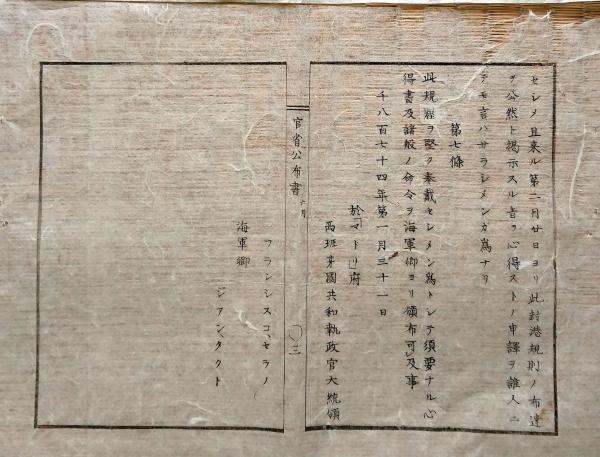 セシメ且来ル第二月廿日ヨリ此封港規則ノ布達
ヲ公然ト掲示スル旨ヲ心得ストノ申譯ヲ誰人ニ
テモ言ハサラシメンカ為ナリ
第七條
此規程ヲ堅ク奉戴セシメン為トシテ須要ナル心
得書及諸般ノ命令ヲ海軍卿ヨリ頒布可及事
千八百七十四年第一月三十一日
於「マトリ」府
西班牙國共和執政官大統領
フランシスコ、セラノ
海軍卿
ジアン、タクト
官省公布書
三